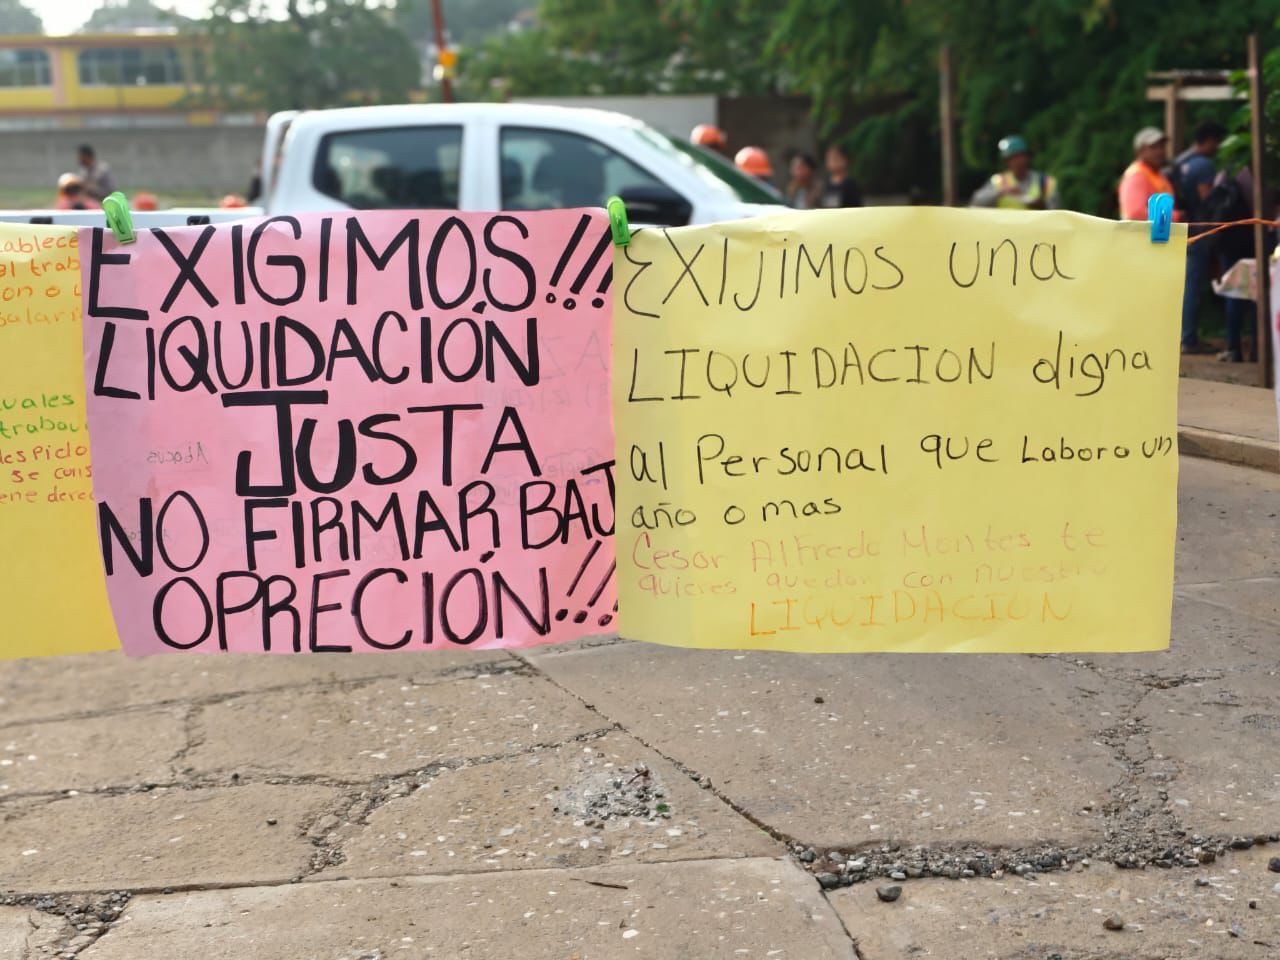 ablece
el trab
on o u
salari
uales
trabau
despido
se cons
ene derec
EXIGIMOS!!!
LIQUIDACIÓN
JUSTA
NO FIRMAR BAJ
OPRECIÓN!!!
EXIJIMOS una
LIQUIDACION digna
al Personal que Laboro un
año o mas
Cesar Alfredo Montes te
quieres quedar con nuestra
LIQUIDACION